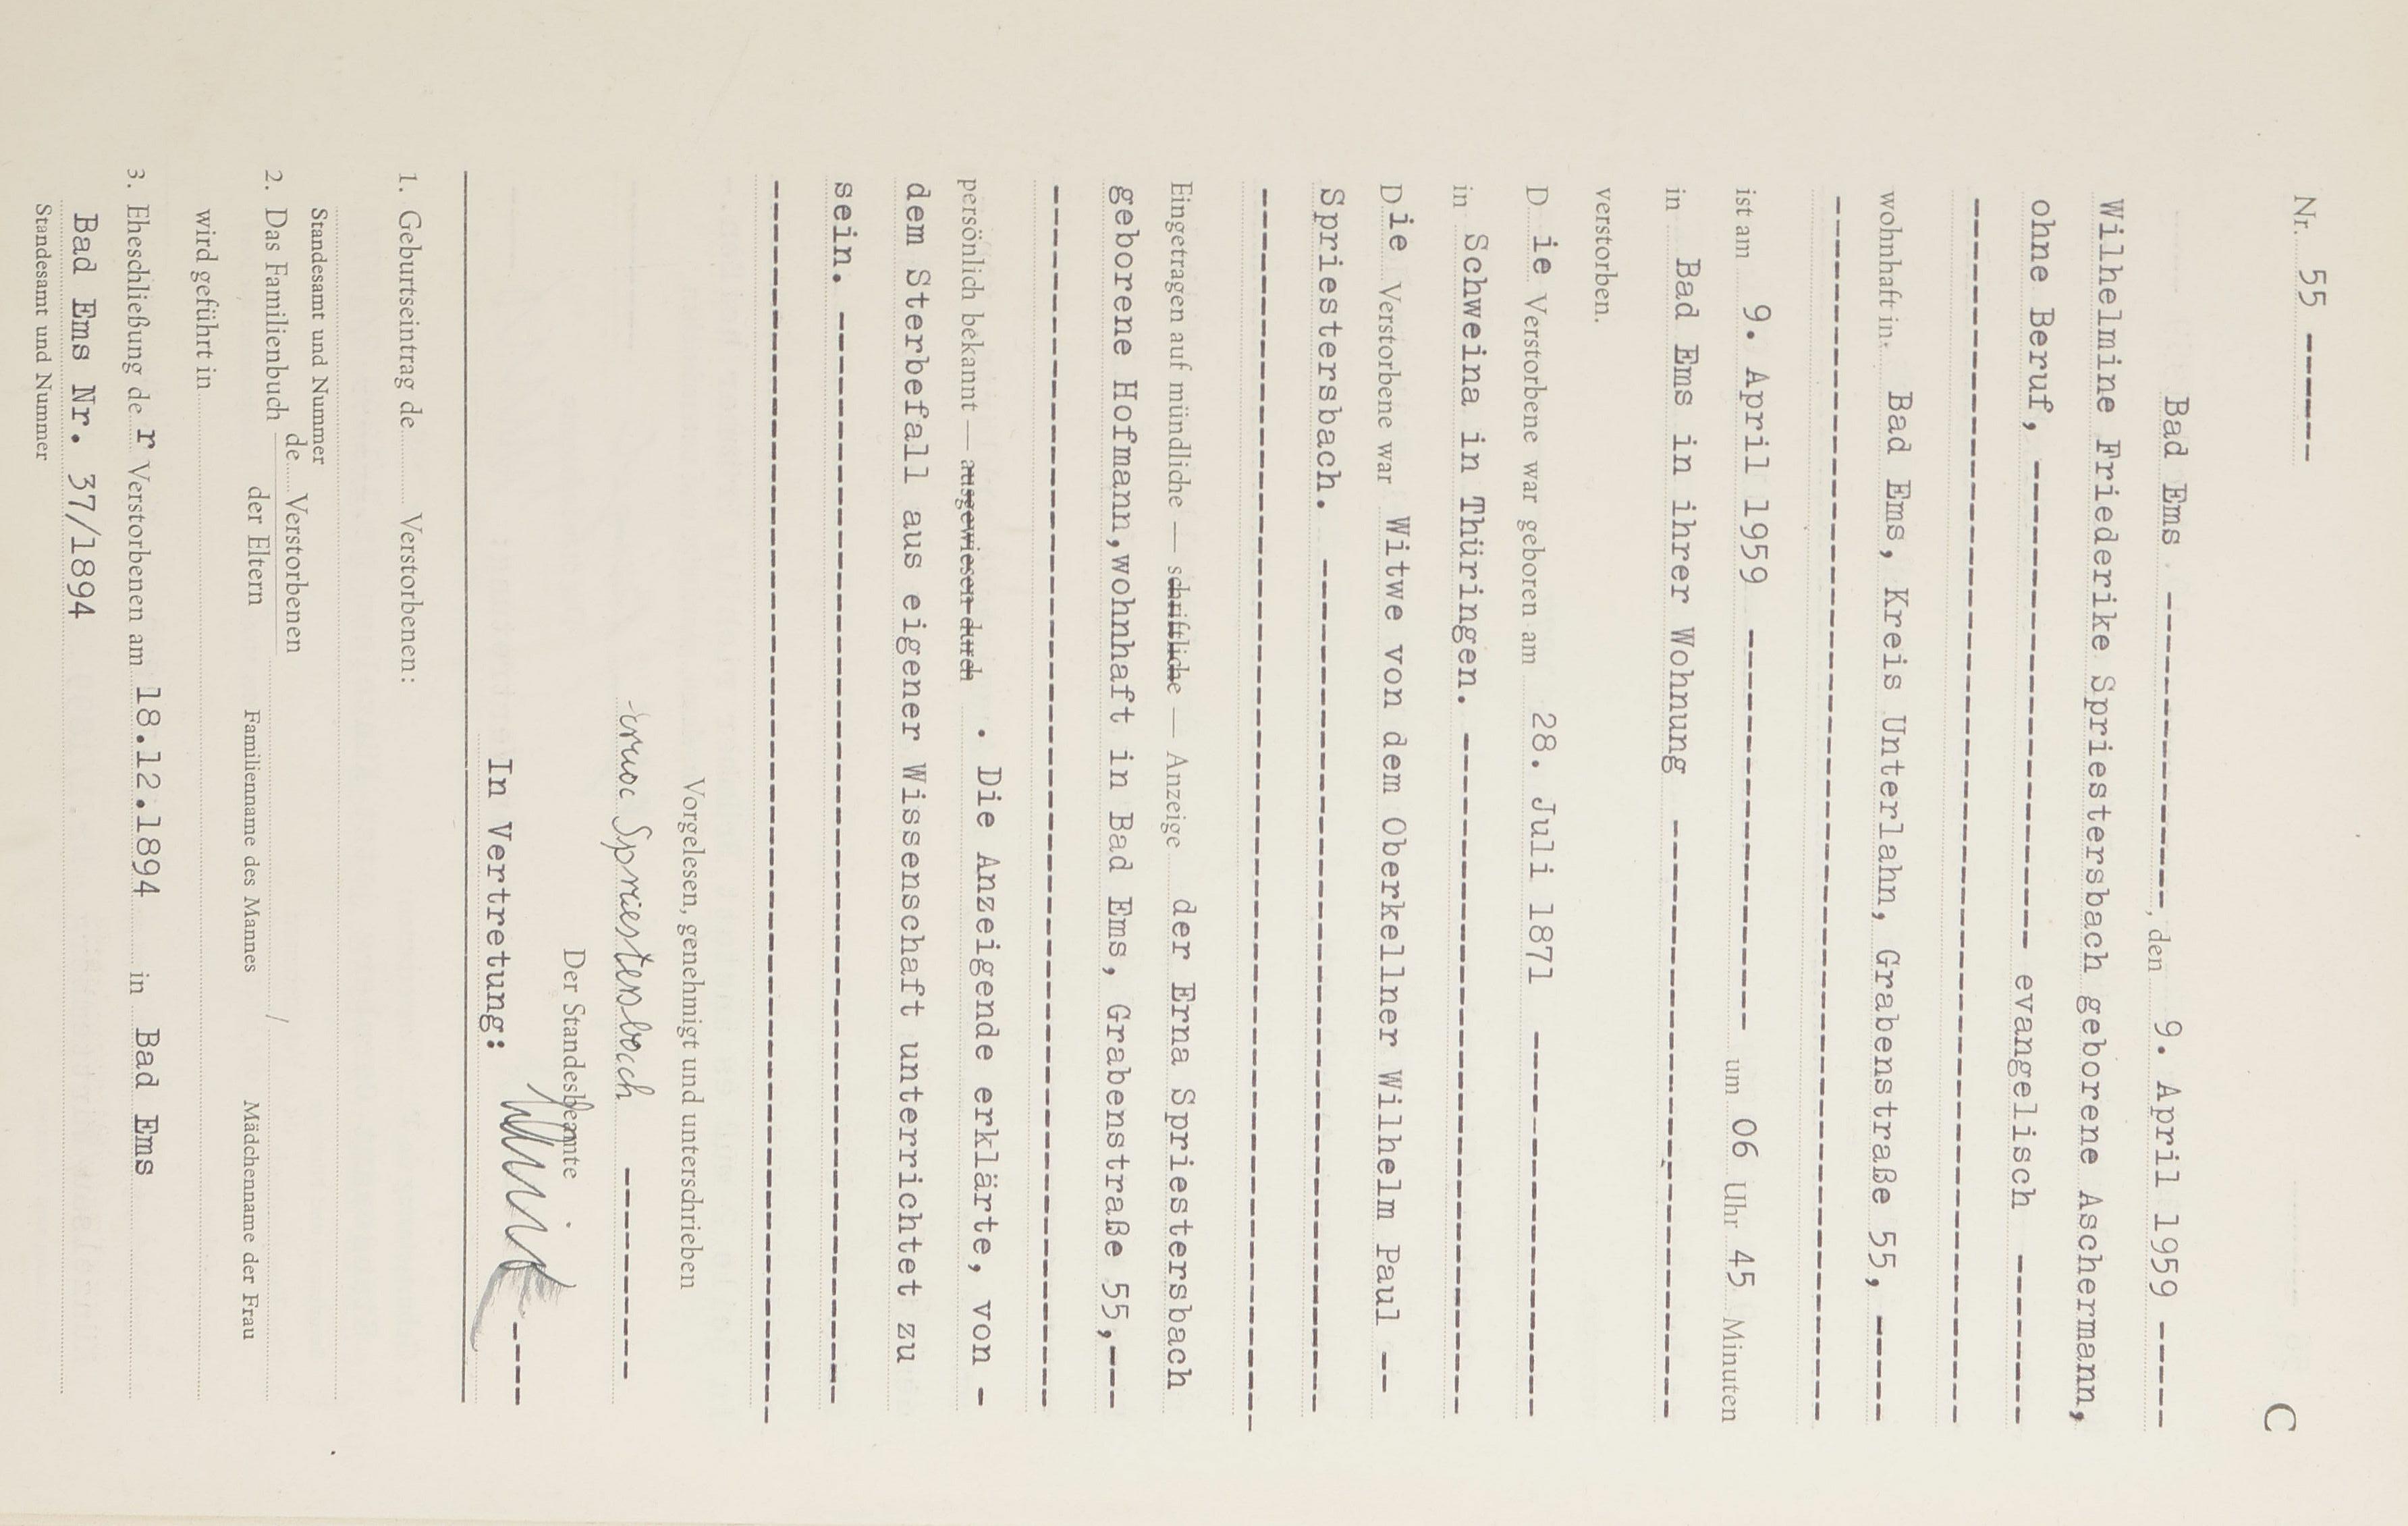 C
Nr. 55 ------
Bad Ems ---------------, den 9. April 1959 -----
Wilhelmine Friederike Spriestersbach geborene Aschermann,
ohne Beruf, ------------------------ evangelisch --------
------------------------------------------------------------
wohnhaft in Bad Ems, Kreis Unterlahn, Grabenstraße 55, -----
------------------------------------------------------------
ist am 9. April 1959 -------------------- um 06 Uhr 45 Minuten
in Bad Ems in ihrer Wohnung ------------------------------
verstorben.
Die Verstorbene war geboren am 28. Juli 1871 -------------------
in Schweina in Thüringen. ----------------------------------
Die Verstorbene war Witwe von dem Oberkellner Wilhelm Paul --
Spriestersbach. ------------------------------------------
------------------------------------------------------------
Eingetragen auf mündliche — schriftliche — Anzeige der Erna Spriestersbach
geborene Hofmann,wohnhaft in Bad Ems, Grabenstraße 55,---
------------------------------------------------------------
persönlich bekannt — ausgewiesen durch . Die Anzeigende erklärte, von -
dem Sterbefall aus eigener Wissenschaft unterrichtet zu
sein. ------------------------------------------------------
------------------------------------------------------------
Vorgelesen, genehmigt und unterschrieben
Spriestersbach -----------
Der Standesbeamte
In Vertretung: ----
1. Geburtseintrag de Verstorbenen:
Standesamt und Nummer
2. Das Familienbuch de Verstorbenen
der Eltern Familienname des Mannes / Mädchenname der Frau
wird geführt in
3. Eheschließung der Verstorbenen am 18.12.1894 in Bad Ems
Bad Ems Nr. 37/1894
Standesamt und Nummer